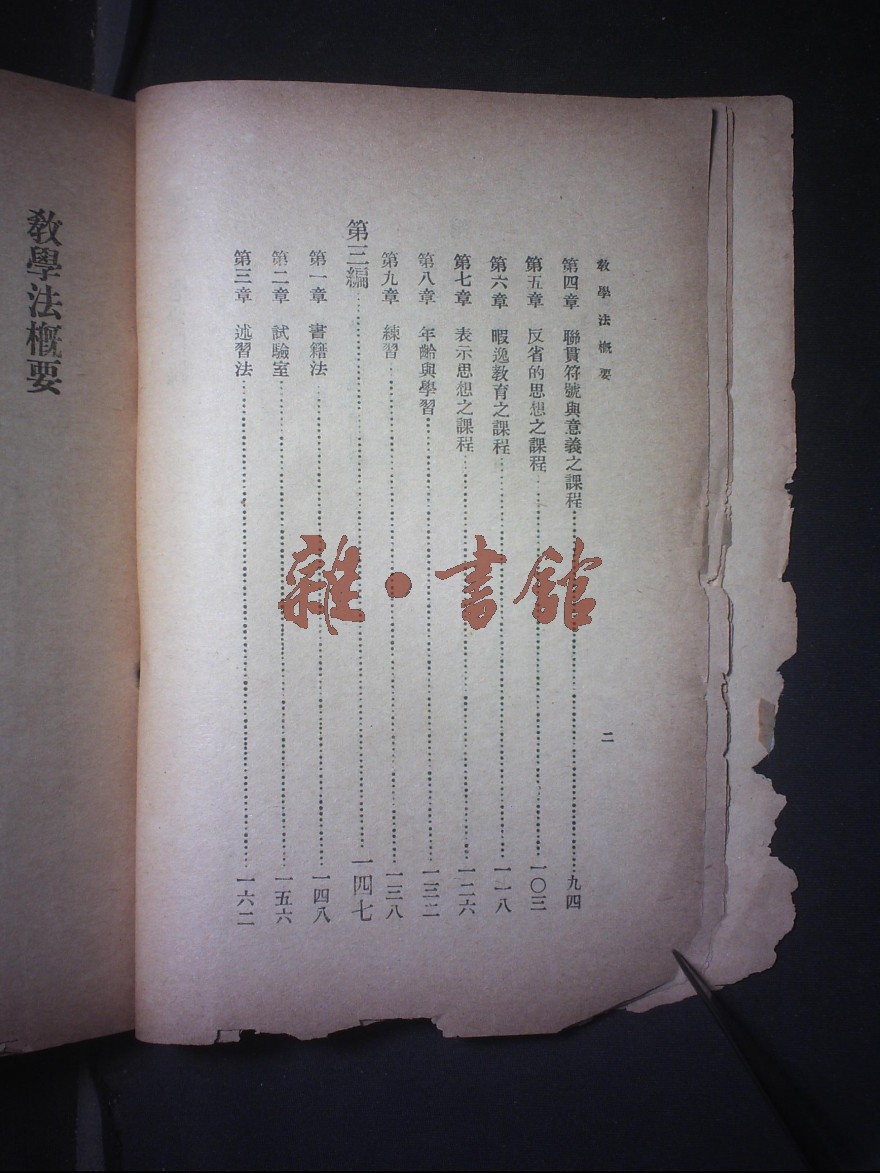 教學法概要
二
第四章 聯貫符號與意義之課程……九四
第五章 反省的思想之課程……一〇三
第六章 暇逸教育之課程……一一八
第七章 表示思想之課程……一二六
第八章 年齡與學習……一三二
第九章 練習……一三八
第三編……一四七
第一章 書籍法……一四八
第二章 試驗室……一五六
第三章 述習法……一六二
教學法概要
雜·書館